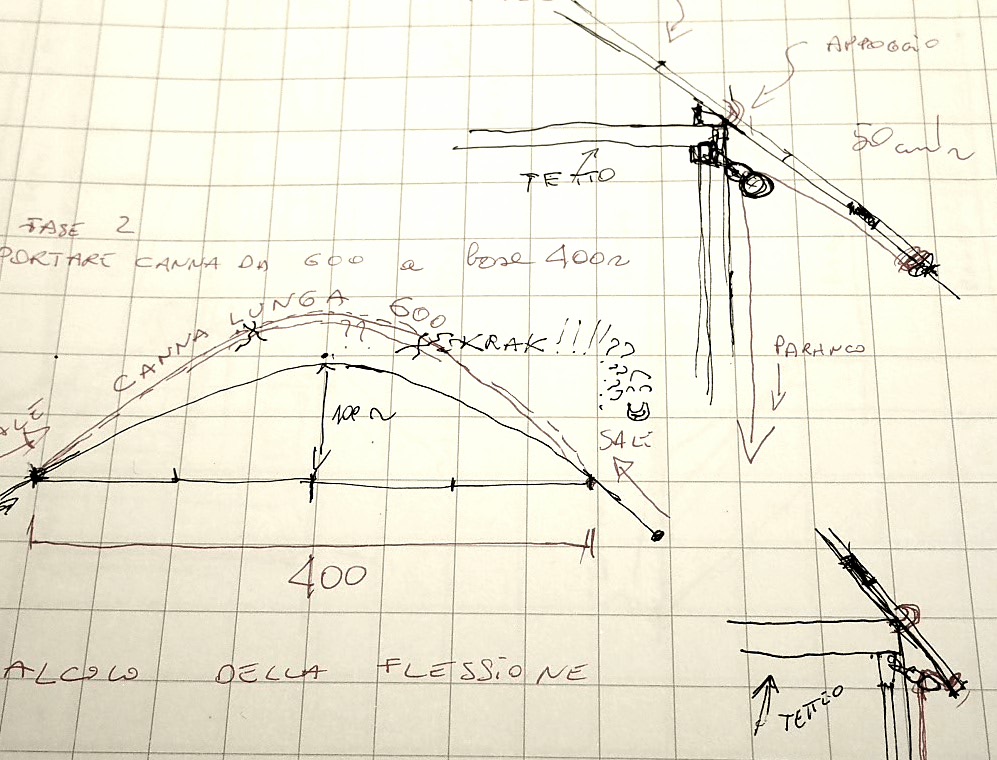 APPOGGIO
TETTO
FASE 2
PORTARE CANNA DA 600 a base 400~
CANNA LUNGA 600
??
KRAK!!!!??
PARANCO
100~
SALE
400
CALCOLO DELLA FLESSIONE
TETTO